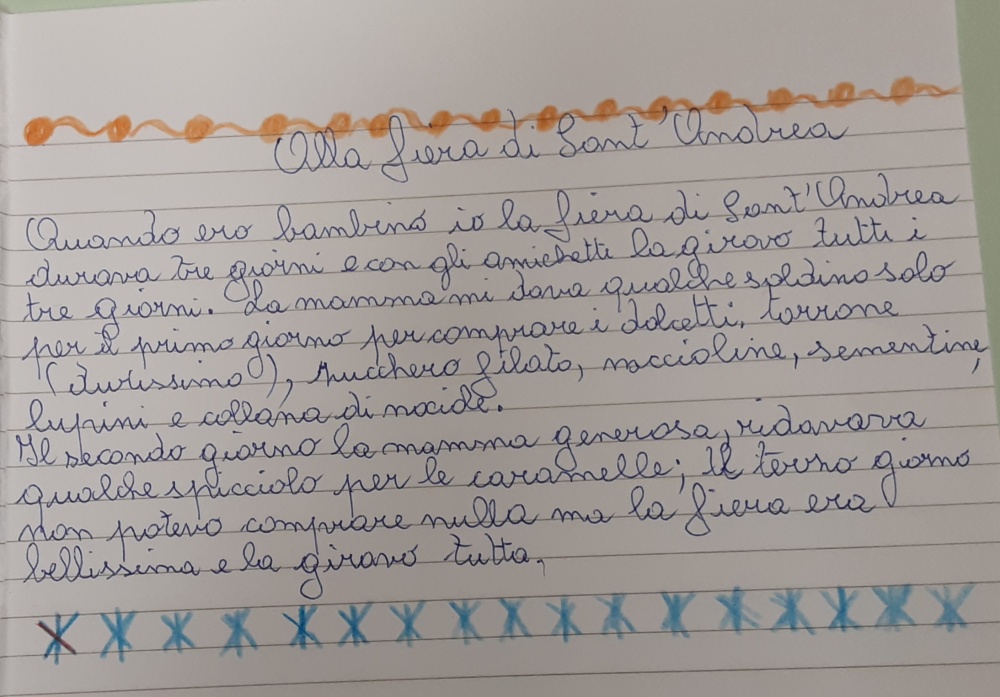 Alla fiera di Sant'Andrea
Quando ero bambino io la fiera di Sant'Andrea
durava tre giorni e con gli amichetti la giravo tutti i
tre giorni. La mamma mi dava qualche soldino solo
per il primo giorno per comprare i dolcetti, torrone
(durissimo), zucchero filato, noccioline, sementine,
lupini e collana di nocide.
Il secondo giorno la mamma generosa, ridavava
qualche spicciolo per le caramelle; Il terzo giorno
non potevo comprare nulla ma la fiera era
bellissima e la giravo tutta.